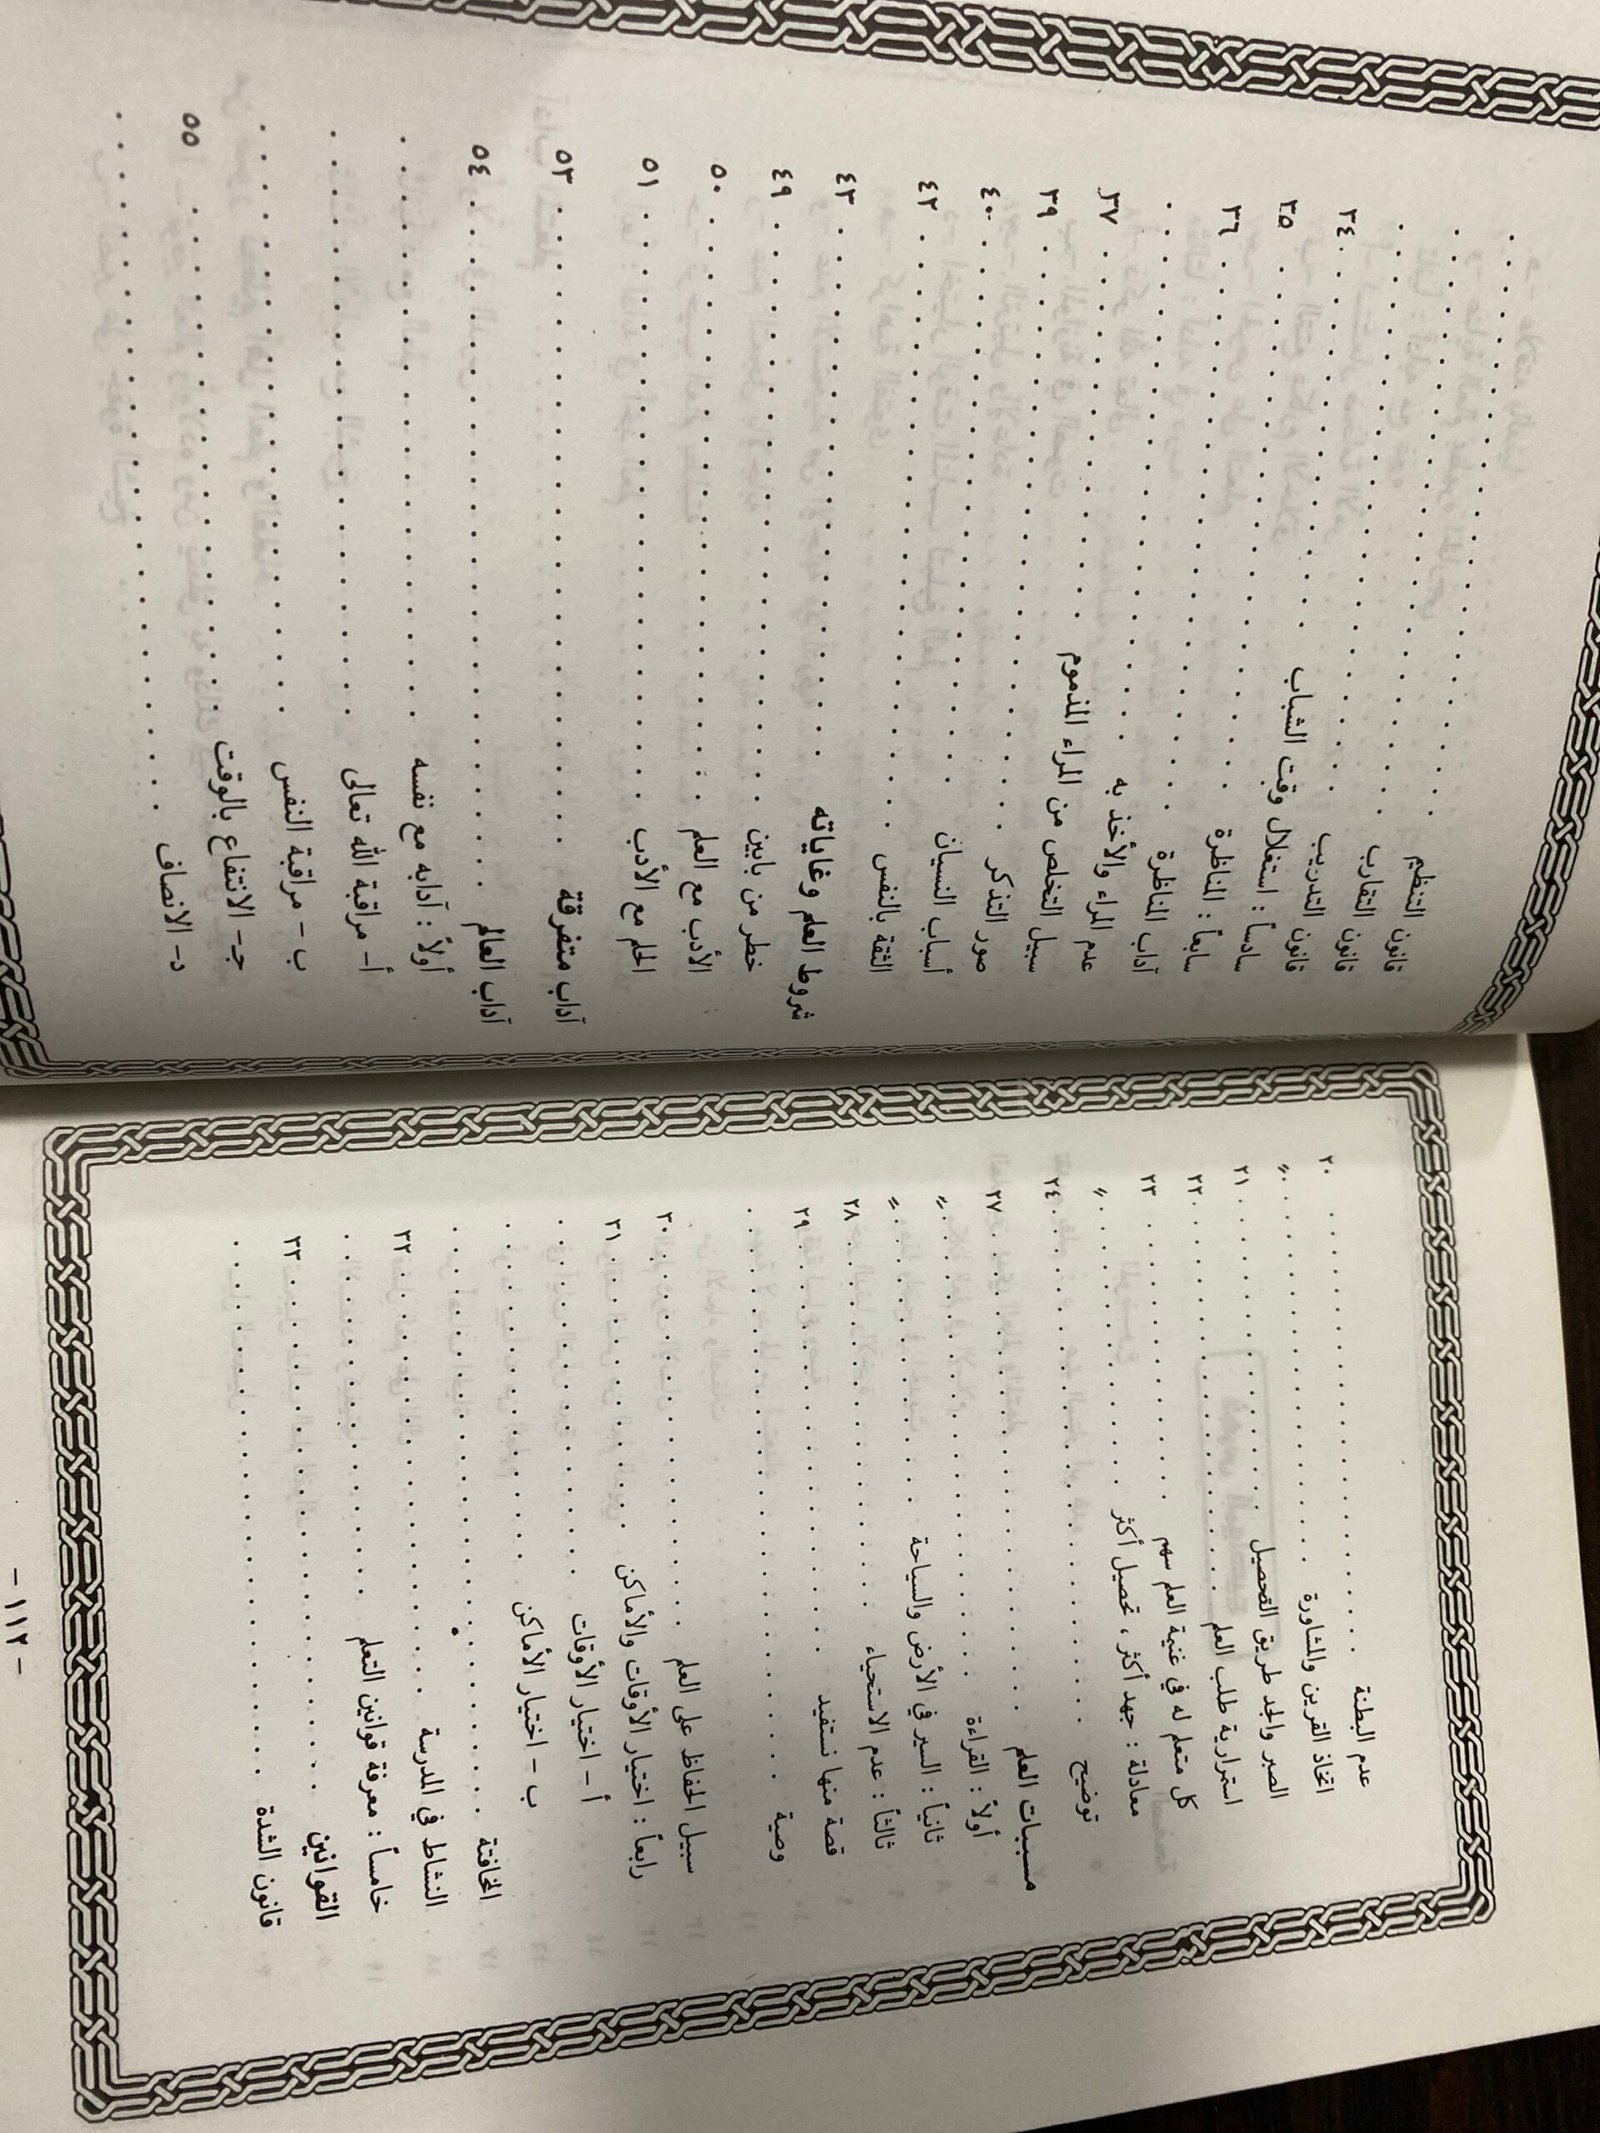 عدم البطنة . . . . . . . . . . ٢٠
اتخاذ القرين والمشاورة . . . . . . . . . . =
الصبر والجد طريق التحصيل . . . . . . . . . . ٢١
استمرارية طلب العلم . . . . . . . . . . ٢٢
كل متعلم له في غنية العلم سهم . . . . . . . . . . ٢٣
معادلة : جهد أكثر ، تحصيل أكثر . . . . . . . . . . =
توضيح . . . . . . . . . . ٢٤
مسببات العلم . . . . . . . . . . ٢٧
أولاً : القراءة . . . . . . . . . . =
ثانياً : السير في الأرض والسياحة . . . . . . . . . . =
ثالثاً : عدم الاستحياء . . . . . . . . . . ٢٨
قصة منها نستفيد . . . . . . . . . . ٢٩
وصية . . . . . . . . . .
سبيل الحفاظ على العلم . . . . . . . . . . ٣٠
رابعاً : اختيار الأوقات والأماكن . . . . . . . . . . ٣١
أ - اختيار الأوقات . . . . . . . . . .
ب - اختيار الأماكن . . . . . . . . . .
المخافتة . . . . . . . . . .
النشاط في المدرسة . . . . . . . . . . ٣٢
خامساً : معرفة قوانين التعلم . . . . . . . . . .
القوانين . . . . . . . . . . ٣٣
قانون الشدة . . . . . . . . . .
- ١١٢ -
قانون التنظيم . . . . . . . . . .
قانون التقارب . . . . . . . . . .
قانون التدريب . . . . . . . . . .
سادساً : استغلال وقت الشباب . . . . . . . . . . ٣٤
سابعاً : المناظرة . . . . . . . . . . ٣٥
آداب المناظرة . . . . . . . . . . ٣٦
عدم المراء والأخذ به . . . . . . . . . .
سبيل التخلص من المراء المذموم . . . . . . . . . . ٣٧
صور التذكر . . . . . . . . . . ٣٩
أسباب النسيان . . . . . . . . . . ٤٠
الثقة بالنفس . . . . . . . . . . ٤٢
شروط العلم وغاياته . . . . . . . . . . ٤٣
خطر من بابين . . . . . . . . . . ٤٩
الأدب مع العلم . . . . . . . . . . ٥٠
الحلم مع الأدب . . . . . . . . . . ٥١
آداب متفرقة . . . . . . . . . . ٥٣
آداب العالم . . . . . . . . . . ٥٤
أولاً : آدابه مع نفسه . . . . . . . . . .
أ- مراقبة الله تعالى . . . . . . . . . .
ب - مراقبة النفس . . . . . . . . . .
جـ- الانتفاع بالوقت . . . . . . . . . . ٥٥
د- الانصاف . . . . . . . . . .